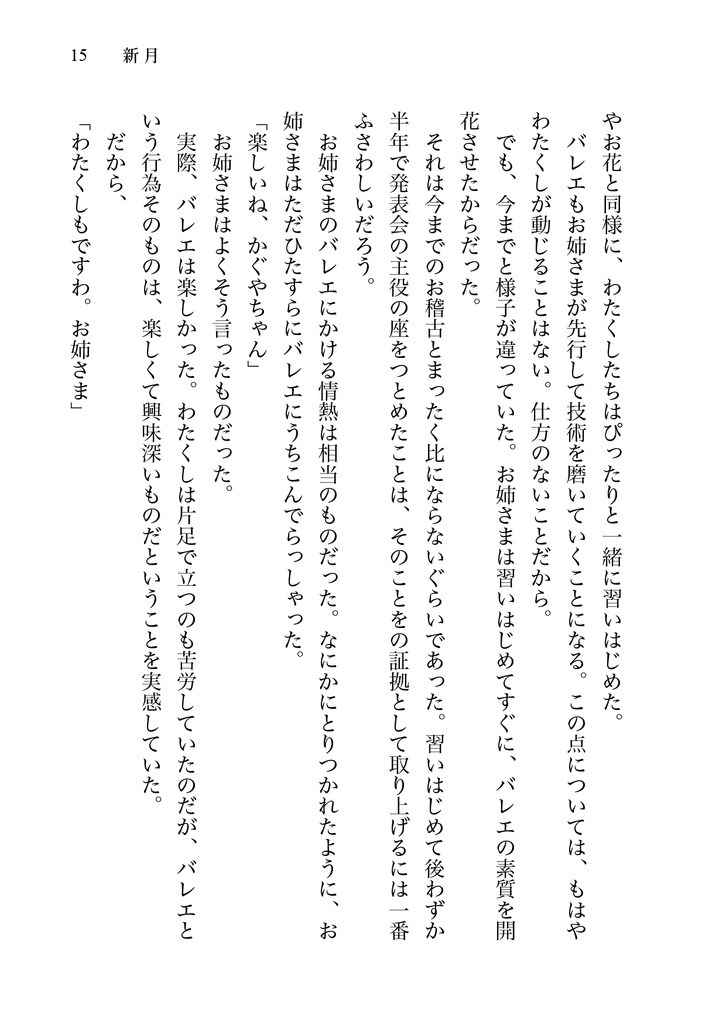 15　新月
やお花と同様に、わたくしたちはぴったりと一緒に習いはじめた。
　バレエもお姉さまが先行して技術を磨いていくことになる。この点については、もはや
わたくしが動じることはない。仕方のないことだから。
　でも、今までと様子が違っていた。お姉さまは習いはじめてすぐに、バレエの素質を開
花させたからだった。
　それは今までのお稽古とまったく比にならないぐらいであった。習いはじめて後わずか
半年で発表会の主役の座をつとめたことは、そのことをの証拠として取り上げるには一番
ふさわしいだろう。
　お姉さまのバレエにかける情熱は相当のものだった。なにかにとりつかれたように、お
姉さまはただひたすらにバレエにうちこんでらっしゃった。
「楽しいね、かぐやちゃん」
　お姉さまはよくそう言ったものだった。
　実際、バレエは楽しかった。わたくしは片足で立つのも苦労していたのだが、バレエと
いう行為そのものは、楽しくて興味深いものだということを実感していた。
　だから、
「わたくしもですわ。お姉さま」